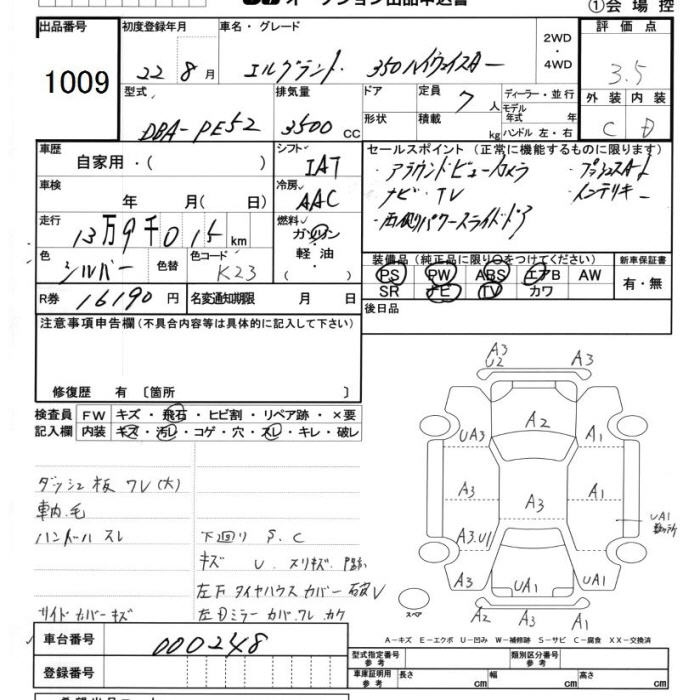 オークション出品申込書
①会場控
出品番号
1009
初度登録年月
22 8月
車名・グレード
エルグランド 350ハイウェイスター
2WD
・
4WD
評価点
3.5
外装 内装
C D
型式
DBA-PE52
排気量
3500 CC
ドア
形状
定員 7 人
積載 kg
ディーラー・並行
モデル年式 年
ハンドル 左・右
車歴
自家用・( )
シフト
IAT
セールスポイント (正常に機能するものに限ります)
・アラウンドビューカメラ
・プッシュスタート
・ナビ・TV
・インテリキー
・両側パワースライドドア
車検
年 月( 日)
冷房
AAC
走行
13万9千015km
燃料
ガソリン
・
軽油
・
( )
色
シルバー
色替
色コード
K23
装備品(純正品に限り○をつけてください)
PS PW ABS エアB AW
SR ナビ TV カワ
新車保証書
有・無
R券 16190円
名変通知期限 月 日
後日品
注意事項申告欄(不具合内容等は具体的に記入して下さい)
修復歴 有 〔箇所 〕
検査員
記入欄
FW キズ・飛石・ヒビ割・リペア跡・×要
内装 キズ・汚レ・コゲ・穴・スレ・キレ・破レ
ダッシュ板ワレ(大)
車内毛
ハンドルスレ
下回り S、C
キズ U スリキズ
左下タイヤハウスカバー破レ
サイドカバーキズ
左Dミラーカバーワレ、カケ
A3
U2
A3
A2
UA3
A1
A3
A3
A1
UA1
A3.U1
A3
UA1
UA1
A2
A3
A1
スペア
A-キズ E-エクボ U-凹み W-補修跡 S-サビ C-腐食 XX-交換済
車台番号
000248
登録番号
型式指定番号
参考
類別区分番号
参考
車庫証明用
参考
長さ cm
幅 cm
高さ cm